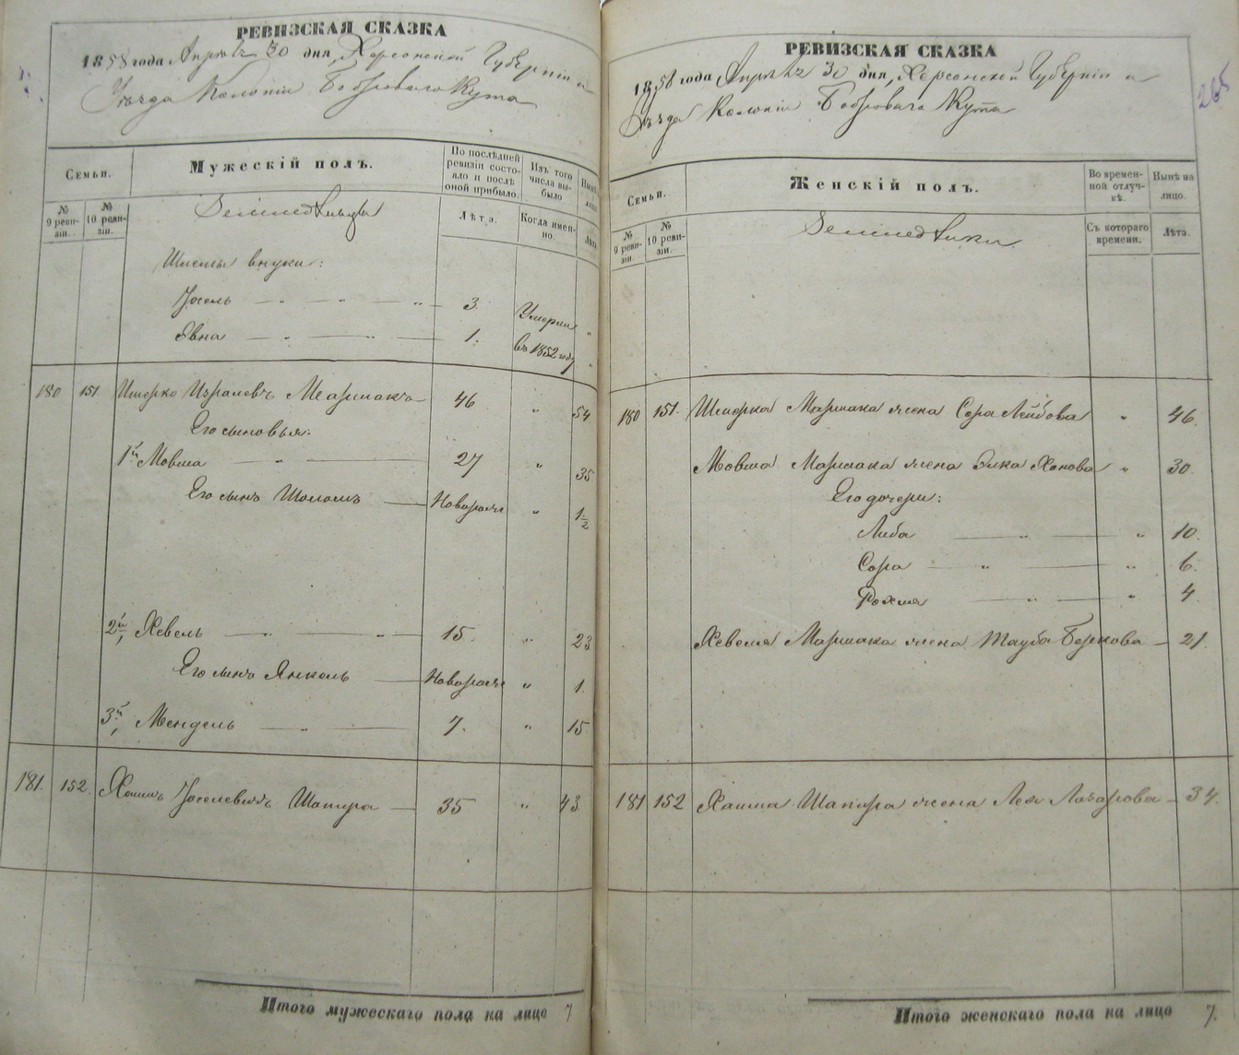 РЕВИЗСКАЯ СКАЗКА
1858 года Апреля 30 дня, Херсонской Губернии и
Уезда Колонии Боброваго Кута
Семьи.
№ 9 ревизіи.
№ 10 ревизіи.
Мужескій полъ.
По послѣдней ревизіи состояло и послѣ оной прибыло.
Лѣта.
Изъ того числа выбыло
Когда именно.
Лѣта.
Земледѣльцы
внуки:
Іосель 3. Умерли
Явна 1. въ 1852 году
180 151 Шмерко Израелевъ Маршакъ 46 54
Его сыновья:
1й Мовша 27 35
Его сынъ Шоломъ Новорожд 1 1/2
2й, Хевель 15. 23
Его сынъ Янкель Новорожде 1.
3й, Мендель 7. 15.
181. 152. Хаимъ Іоселевичъ Шапира 35 43
Итого мужескаго пола на лицо 7
РЕВИЗСКАЯ СКАЗКА
1858 года Апреля 30 дня, Херсонской Губерніи и
Уезда Колоніи Бобровага Кута
265
Семьи.
№ 9 ревизіи.
№ 10 ревизіи.
Женскій полъ.
Во временной отлучкѣ.
Съ котораго времени.
Нынѣ на лицо.
Лѣта.
180 151. Шмерка Маршака жена Сора Лейбова 46.
Мовша Маршака жена Элка Хонова 30.
Его дочери:
Либа 10.
Сора 6.
Рохля 4.
Хевеля Маршака жена Тауба Беркова 21.
181 152 Хаима Шапира жена Лея Лазарова 34.
Итого женскаго пола на лицо 7.